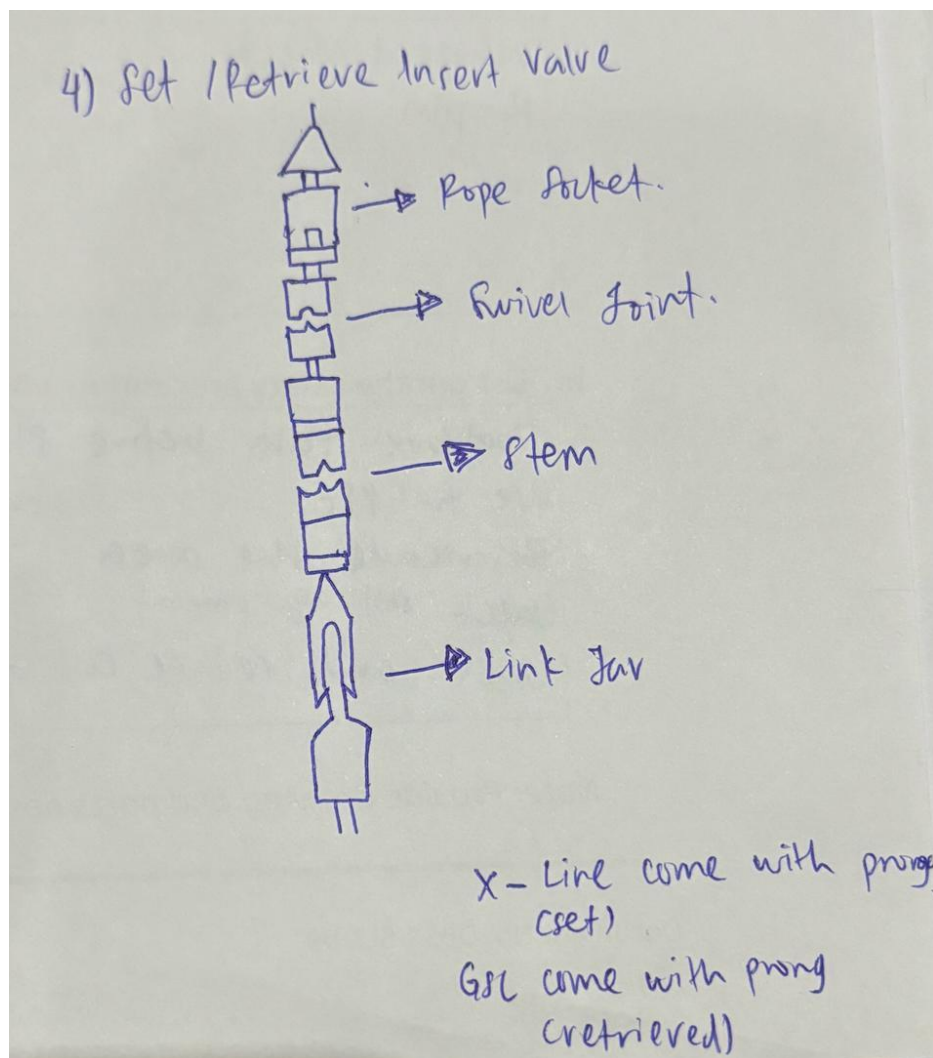 4) Set / Retrieve Insert Valve
Rope Socket.
Swivel Joint.
Stem
Link Jar
X-Line come with prong
(set)
GSL come with prong
(retrieved)